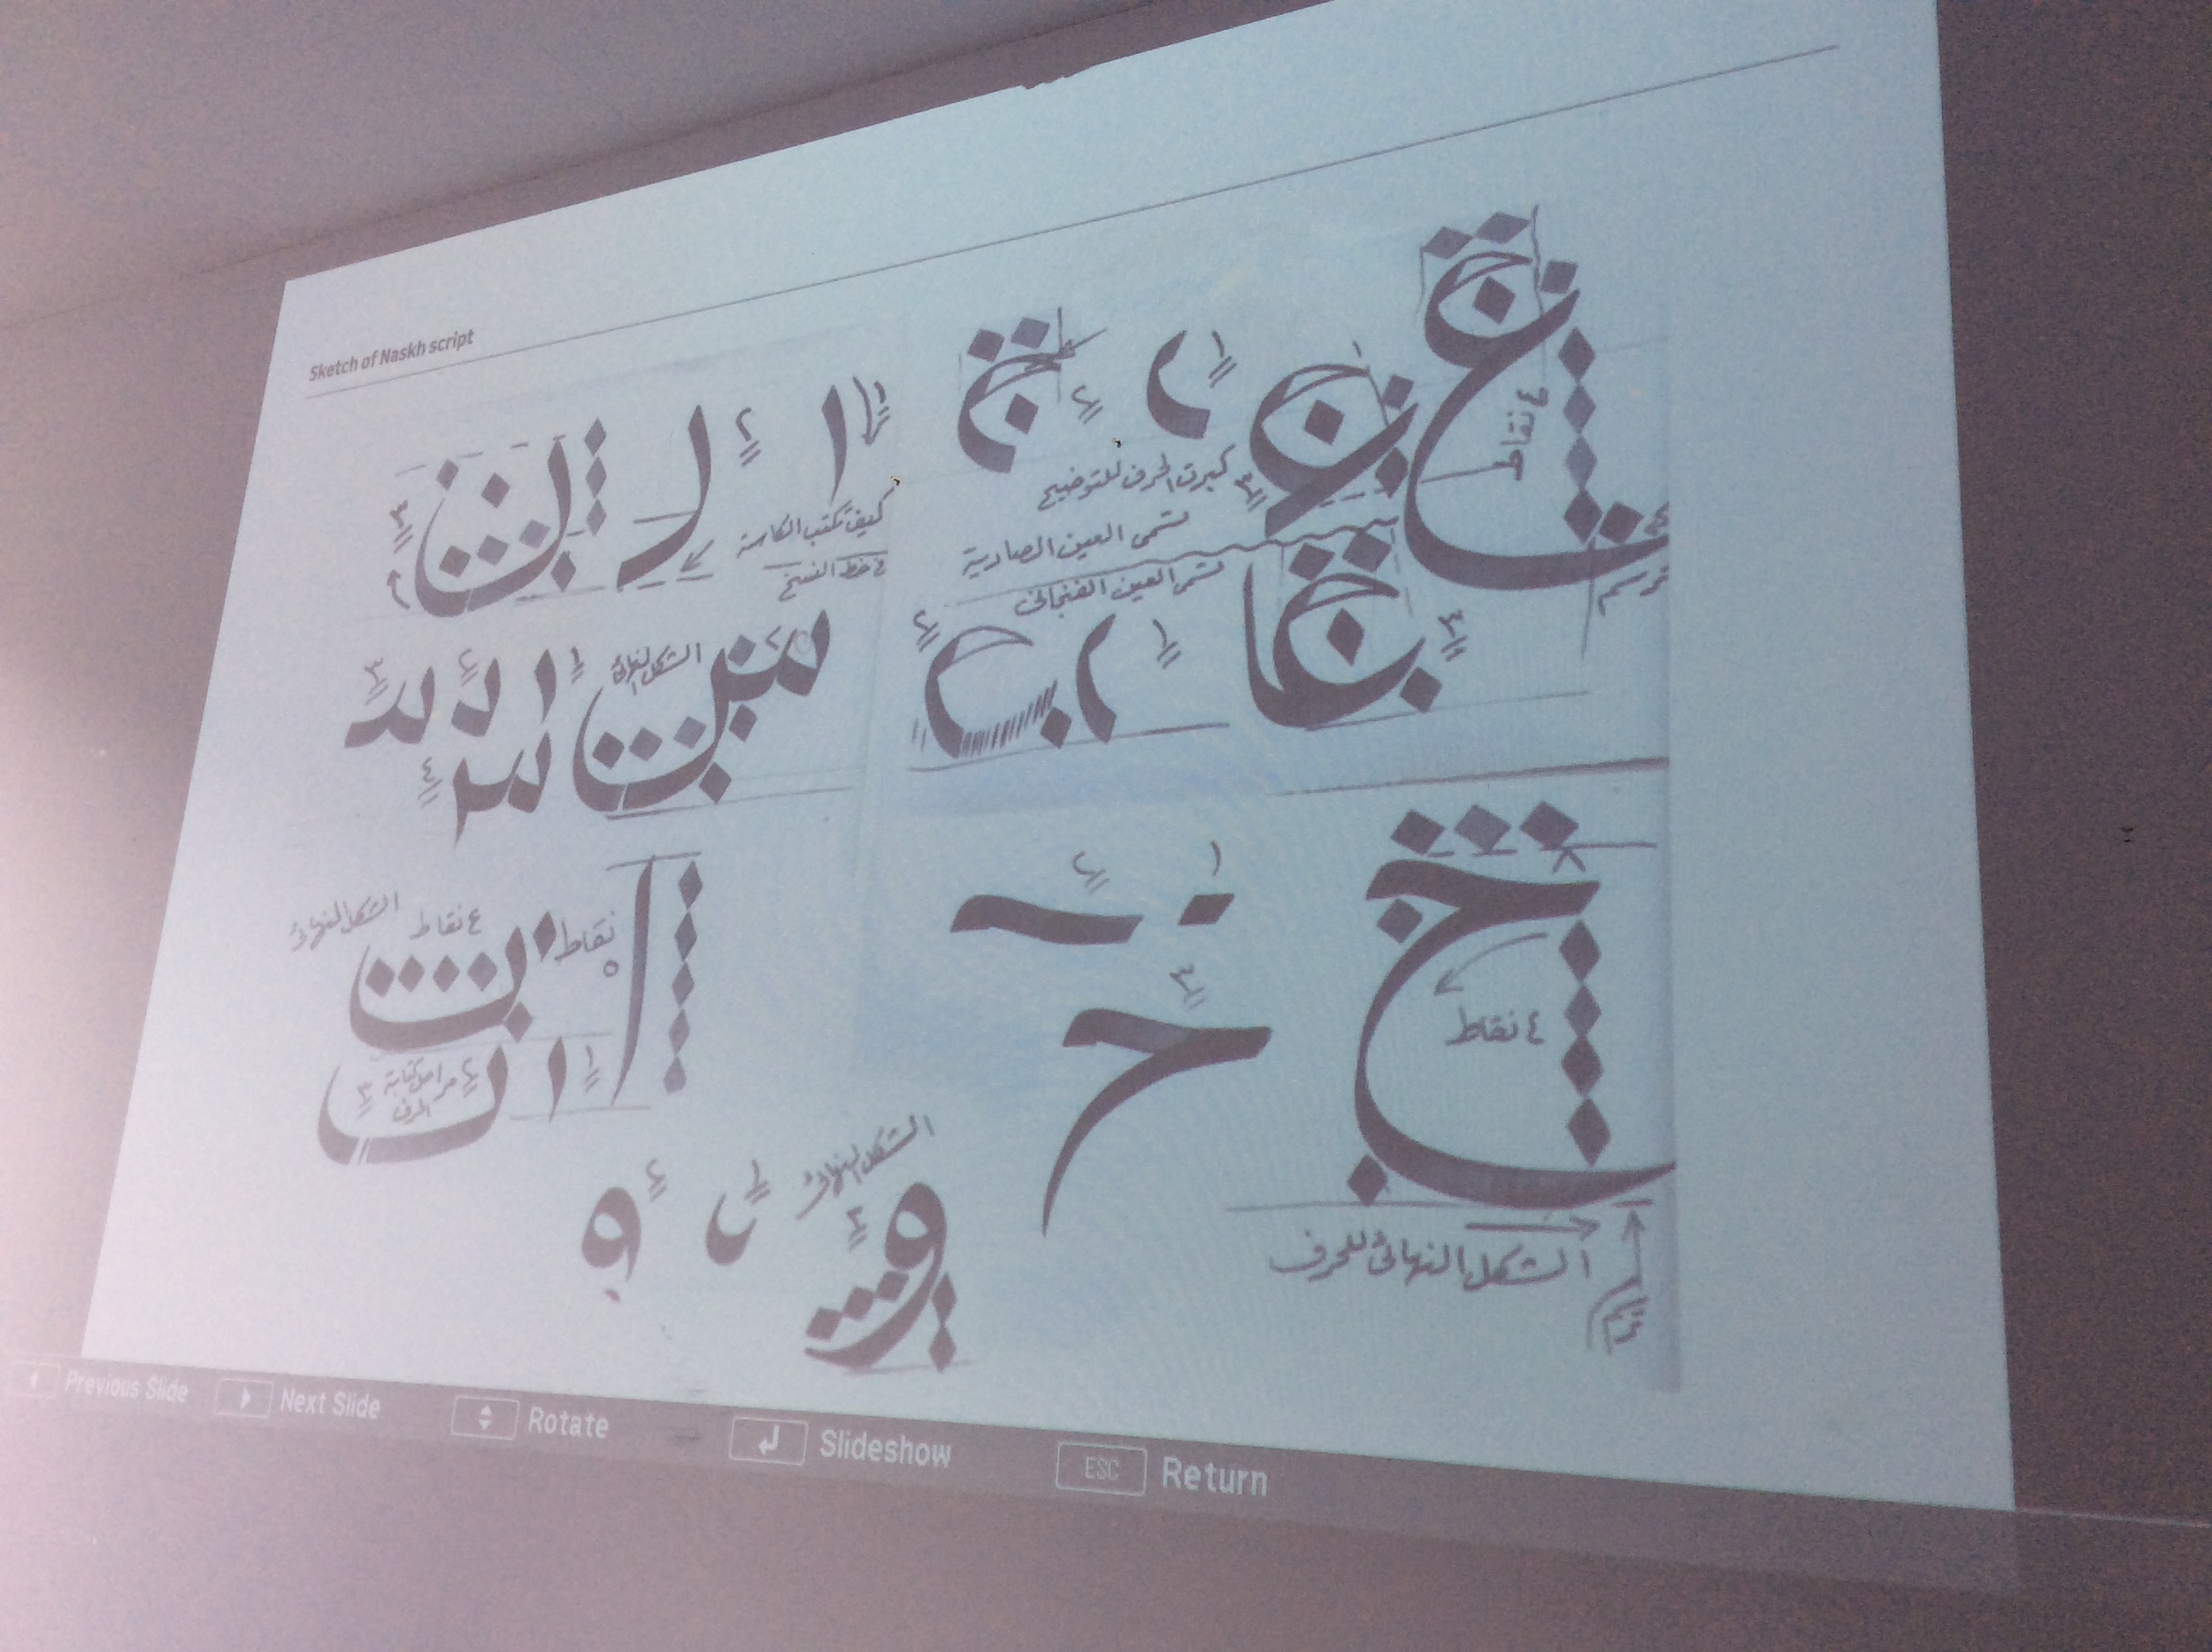 Sketch of Naskh script
٤ نقاط
كبرت الحرف للتوضيح
تسمى العين الصادية
تسمى العين الفنجاني
كيف تكتب الكاسة
في خط النسخ
الشكل النهائي
الشكل النهائي
٤ نقاط
٥ نقاط
مراحل كتابة
الحرف
الشكل النهائي
٤ نقاط
الشكل النهائي للحرف
Previous Slide
Next Slide
Rotate
Slideshow
ESC Return